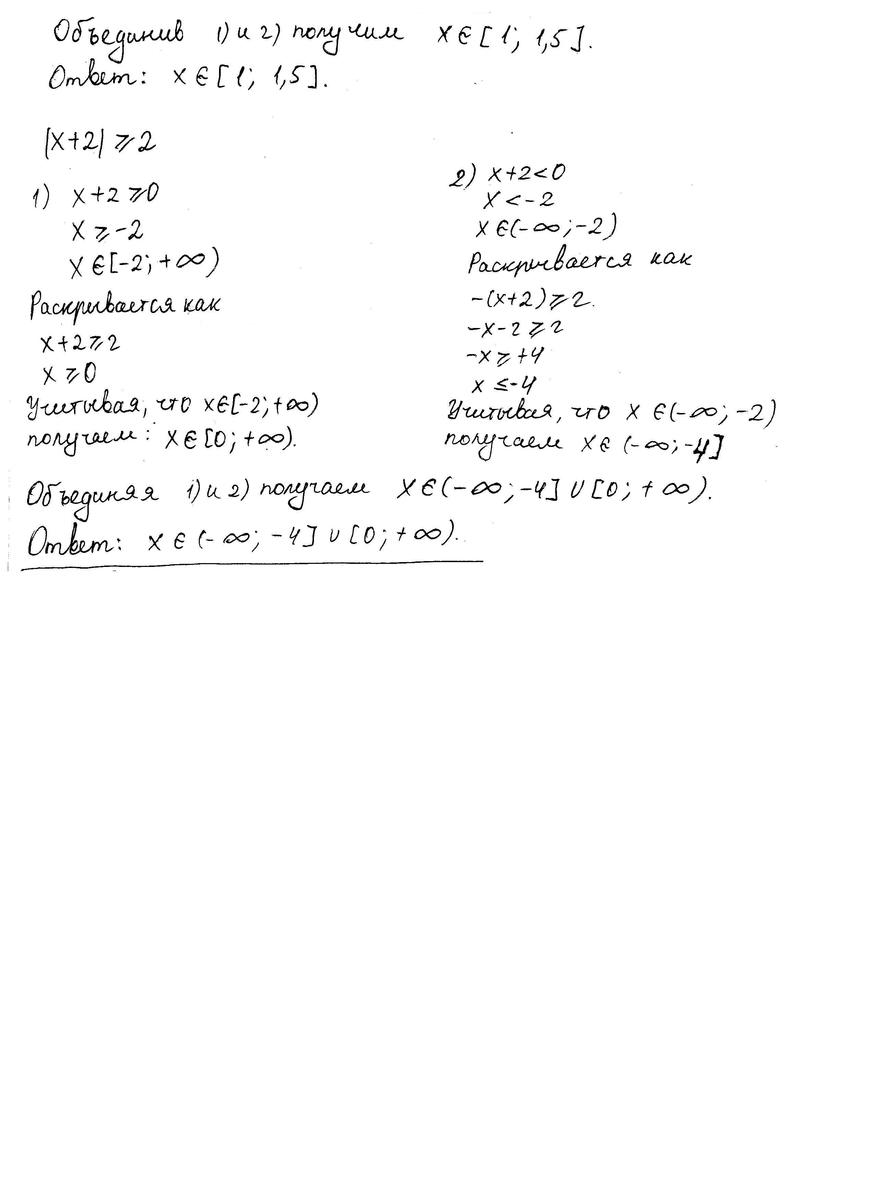 Объединив 1) и 2) получим x∈[1; 1,5].
Ответ: x∈[1; 1,5].
|x+2|⩾2
1) x+2⩾0
x⩾-2
x∈[-2; +∞)
Раскрывается как
x+2⩾2
x⩾0
Учитывая, что x∈[-2; +∞)
получаем: x∈[0; +∞).
2) x+2<0
x<-2
x∈(-∞; -2)
Раскрывается как
-(x+2)⩾2.
-x-2⩾2
-x⩾+4
x≤-4
Учитывая, что x∈(-∞; -2)
получаем x∈(-∞; -4]
Объединяя 1) и 2) получаем x∈(-∞; -4]∪[0; +∞).
Ответ: x∈(-∞; -4]∪[0; +∞).